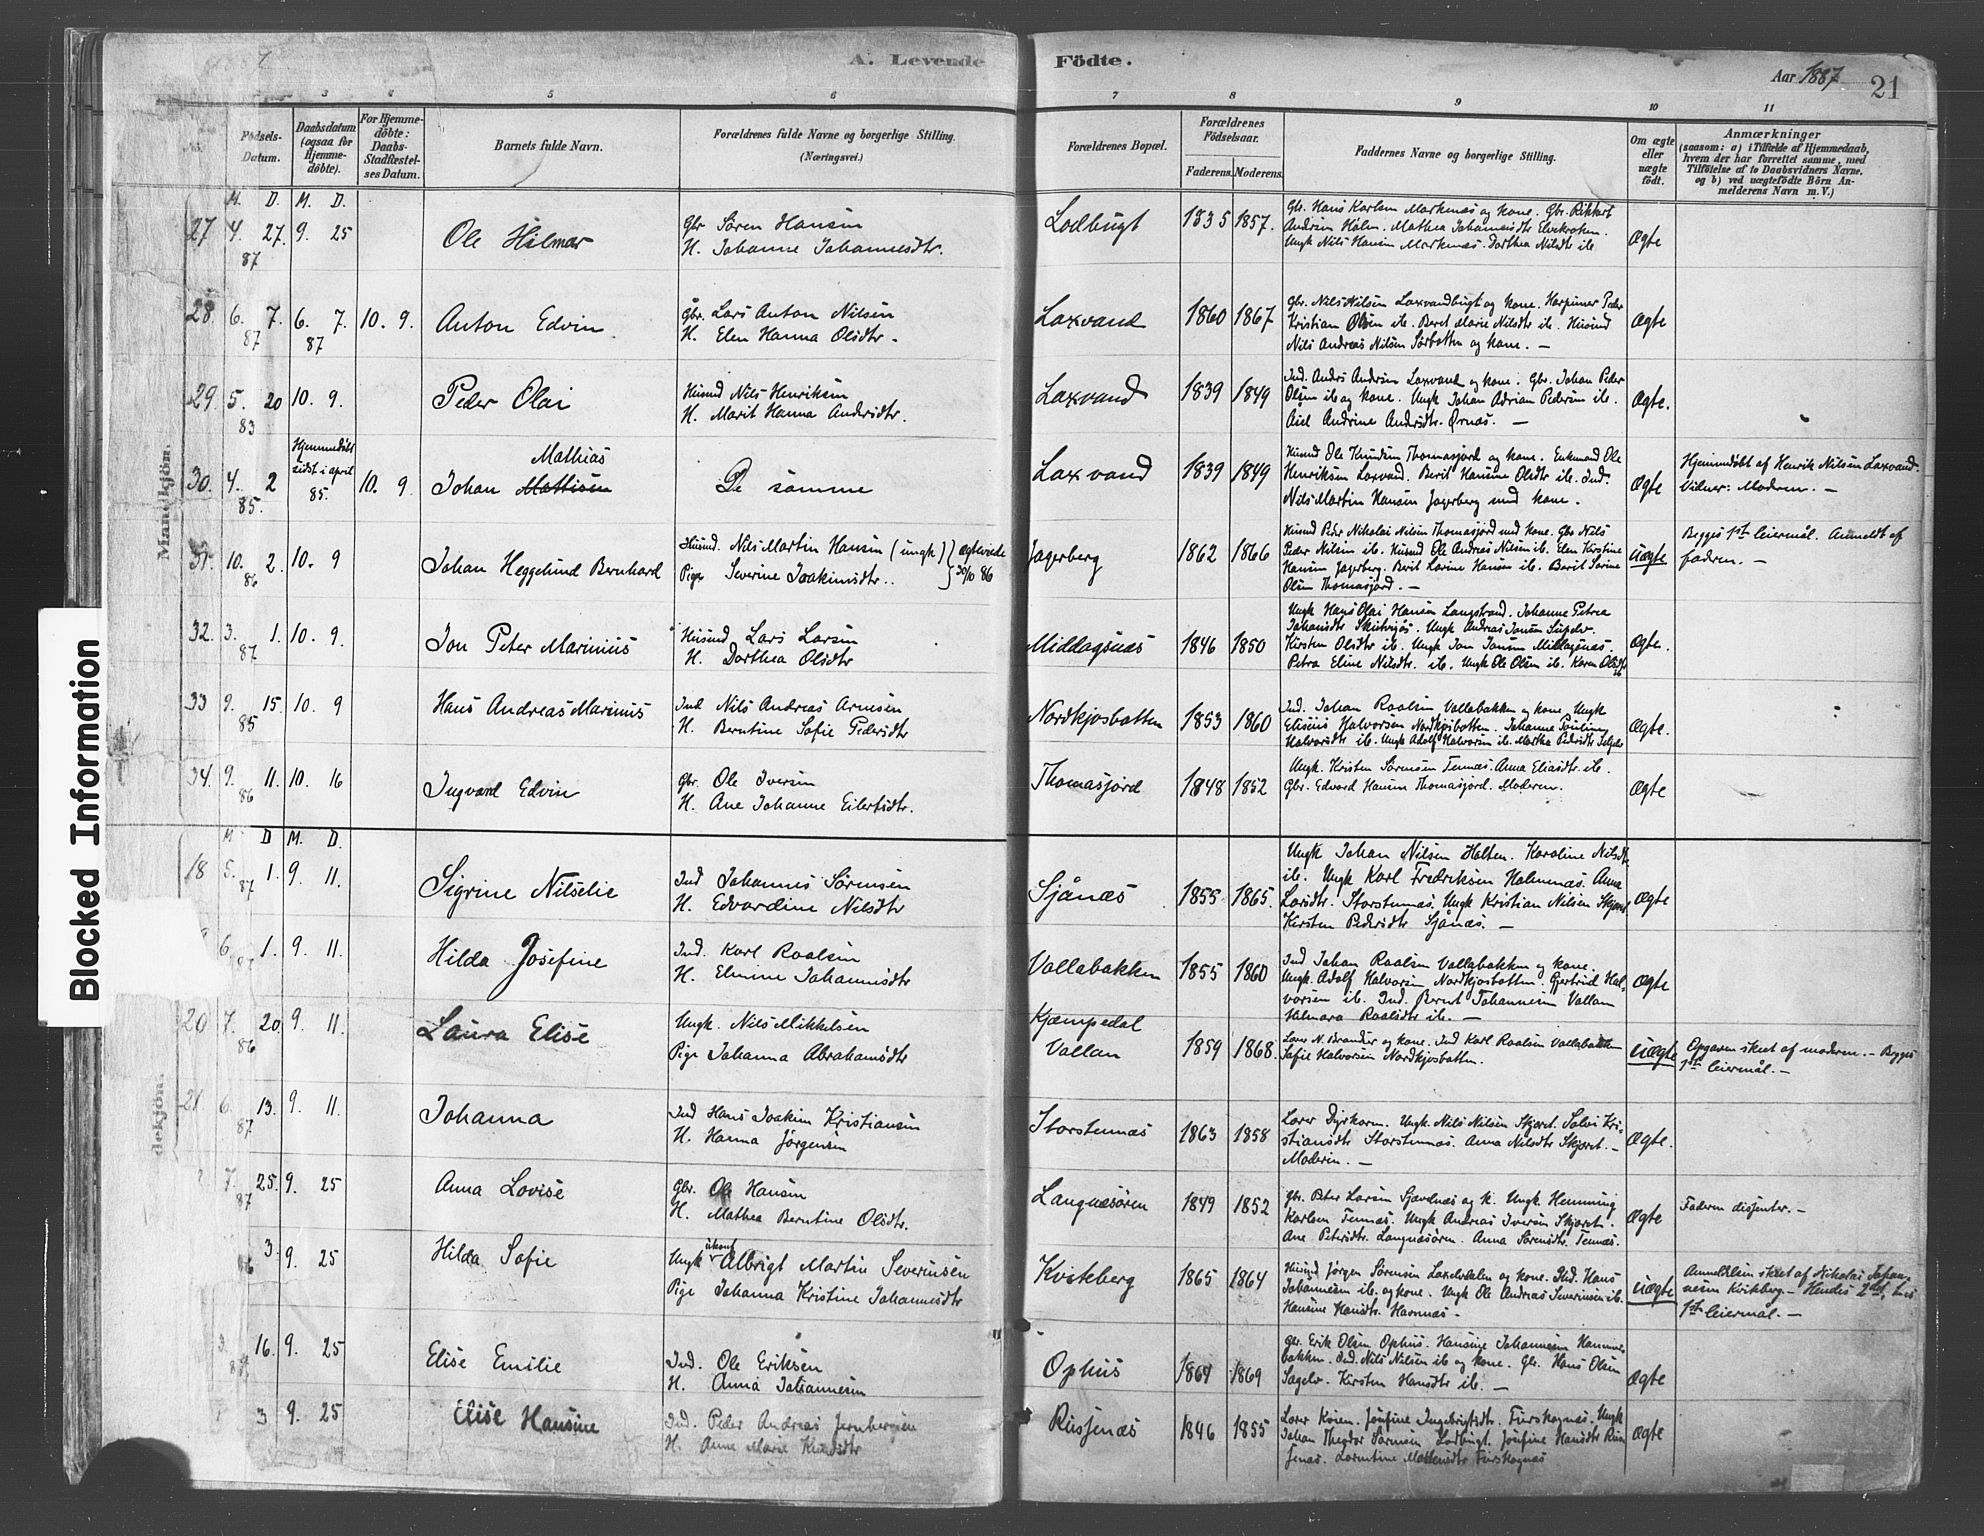 A. Levende Födte.
Aar 1887
21
3 4 5 6 7 8 9 10 11
Fødsels-Datum.
Daabsdatum (ogsaa for Hjemmedöbte).
For Hjemmedöbte: Daabs-Stadfæstelses Datum.
Barnets fulde Navn.
Forældrenes fulde Navne og borgerlige Stilling.
(Næringsvei.)
Forældrenes Bopæl.
Forældrenes Födselsaar.
Faderens. Moderens.
Faddernes Navne og borgerlige Stilling.
Om ægte eller uægte födt.
Anmærkninger
(saasom: a) i Tilfælde af Hjemmedaab, hvem der har forrettet samme, med Tilföielse af to Daabsvidners Navne, og b) ved uægtefödte Börn Anmelderens Navn m. V.)
Blocked Information
Mandkjön.
M. D. M. D.
27 4. 27. 87 9. 25 Ole Hilmar
Gbr Sören Hansen
H. Johanne Johannesdtr.
Lodbugt 1835 1857.
Gbr. Hans Karlsen Markenæs og kone. Gbr. Rikhart
Andersen Holm. Mathea Johannesdtr Elvekroken.
Ungk Nils Hansen Markenæs. Dorthea Nilsdtr ib.
Ægte
28 6. 7. 87 6. 7. 87 10. 9. Anton Edvin
Gbr. Lars Anton Nilsen
H. Elen Hanna Olsdtr.
Laxvand 1860 1867
Gbr. Nils Nilsen Laxvandbugt og kone. Peder
Kristian Olsen ib. Beret Marie Nilsdtr ib. Husmd
Nils Andreas Nilsen Sørbotten og kone. —
Ægte
29. 5. 20 83 10. 9. Peder Olai
Husmd Nils Henriksen
H. Marit Hanna Andersdtr.
Laxvand 1839 1849
Ind. Anders Andersen Laxvand og kone. Gbr. Johan Peder
Olsen ib og kone. Ungk Johan Adrian Pedersen ib.
Andrine Andersdtr. Ørnæs. —
Ægte.
30. 4. 2 85. Hjemmedöbt sidst i april 85. 10. 9 Johan Mathias
De samme
Laxvand 1839 1849
Husmd Ole Knudsen Thomasjord og kone. Enkemand Ole
Henriksen Laxvand. Berit Hansine Olsdtr ib. Ind.
Nils Martin Hansen Jagerberg med kone.
Ægte
Hjemmdöbt af Henrik Nilsen Laxvand.
Vidner: Moderen. —
31. 10. 2. 86 10. 9 Johan Heggelund Bernhard
Husmd. Nils Martin Hansen (ungk)
Pige Severine Joakimsdtr.. } Ægteviede 30/10 86
Jagerberg 1862 1866
Husmd Peder Nikolai Nilsen Thomasjord med kone. Gbr Nils
Peder Nilsen ib. Husmd Ole Andreas Nilsen ib. Elen Kirstine
Hansen Jagerberg. Berit Larine Hansen ib. Berit Sørine
Olsen Thomasjord. —
uægte
Begges 1st leiermål. Anmeldt af
faderen. —
32. 3. 1. 87 10. 9. Jon Peter Marinius
Husmd Lars Larsen
H. Dorthea Olsdtr
Middagsnæs 1846 1850
Ungk Hans Olai Hansen Langstrand. Johanne Petrea
Johansdtr. Ungk Andreas Jonsen
Kirsten Olsdtr ib. Ungk Jon Jonsen Middagsnæs.
Petra Eline Nilsdtr. ib. Ungk Ole Olsen ib. Karen Olsdtr ib
Ægte.
33 9. 15. 85 10. 9 Hans Andreas Marinius
Ind Nils Andreas Arnesen
H. Berntine Sofie Pedersdtr
Nordkjosbotten 1853 1860
Ind. Johan Roalsen Vollabakken og kone. Ungk
Eliseus Halvorsen Nordkjosbotten. Johanne Pauline
Halvorsdtr ib. Ungk Adolf Halvorsen ib. Martha Pedersdtr
Ægte.
34. 9. 11. 86 10. 16 Ingvard Edvin
Gbr. Ole Iversen
H. Ane Johanne Eilertsdtr.
Thomasjord 1848 1852
Ungk. Kristen Sørensen Tennæs. Anna Eliasdtr. ib.
Gbr. Edvard Hansen Thomasjord. Moderen.
Ægte
dekjön.
M D M. D.
18 5. 1. 87 9. 11. Sigrine Nilselie
Ind Johannes Sörensen
H. Edvardine Nilsdtr
Sjånæs 1855 1865.
Ungk Johan Nilsen Holten. Karoline Nilsdtr
ib. Ungk Karl Fredriksen Holmenæs. Anne
Larsdtr. Storstennæs. Ungk Kristian Nilsen Skjæret
Kirsten Pedersdtr Sjånæs. —
Ægte
6. 1. 9. 11. Hilda Josefine
Ind. Karl Roalsen
H. Elenine Johannesdtr
Vollabakken 1855 1860
Ind Johan Roalsen Vollabakken og kone.
Ungk. Adolf Halvorsen Nordkjosbotten. Gjertrud Hal-
vorsen ib. Ind. Bernt Johannesen Vollan
Valnara Roalsdtr ib. —
Ægte
20 7. 20. 86 9. 11. Laura Elise
Ungk. Nils Mikkelsen
Pige Johanna Abrahamsdtr
Kjempedal
Vollan 1859 1868.
Lærer N. Brander og kone. Ind Karl Roalsen Vollabakken
Sofie Halvorsen Nordkjosbotten.
uægte
Opgaven skeet af moderen. — Begges
1ste leiermål. —
21. 6. 13. 87 9. 11. Johanna
Ind Hans Joakim Kristiansen
H. Hanna Jörgensen
Storstennæs 1863 1858
Lærer Dyrkorn. Ungk. Nils Nilsen Skjæret. Solvi Kri-
stiansdtr Storstennæs. Anna Nilsdtr Skjæret. —
Moderen. —
Ægte.
7. 25. 87 9. 25 Anna Lovise
Gbr. Ole Hansen
H. Mathea Berntine Olsdtr.
Langnæsören 1849 1852
Gbr. Peter Larsen Sjavelnæs og k. Ungk. Hemming
Karlsen Tennæs. Ungk Andreas Iversen Skjæret.
Ane Petersdtr. Langnæsören. Anna Sørensdtr. Tennæs.
Ægte
Faderen dissenter. —
3. 86 9. 25 Hilda Sofie
Ungk Albrigt Martin Severinsen
Pige Johanna Kristine Johannesdtr
Kviteberg 1865 1864
Husmd Jørgen Sørensen Laxelvdalen og kone. Ind. Hans
Johannesen ib. og kone. Ungk Ole Andreas Severinsen ib.
Hansine Hansdtr. Havnnæs.
uægte
Anmeldelsen skeet af Nikolai Johan-
nesen Kvitberg. — Hendes 2det, hans
1ste leiermål. —
16. 9. 25 Elise Emilie
Ind. Ole Eriksen
H. Anna Johannesen
Ophus 1864 1869
Gbr. Erik Olsen Ophus. Hansine Johannesen Hammer-
bakken. Ind. Nils Nilsen ib og kone. Gbr. Hans Olsen
Sagelv. Kirsten Hansdtr ib. —
Ægte
3 9. 25 Elise Hansine
Ind. Peder Andreas Jernbergsen
H. Anne Marie Knudsdtr
Russenæs 1846 1855
Lærer Koien. Josefine Ingebrigtsdtr. Furskognæs. Ungk
Johan Theodor Sørensen Lodbugt. Josefine Hansdtr Rus-
senæs. Larntine Mathisdtr Furskognæs
Ægte